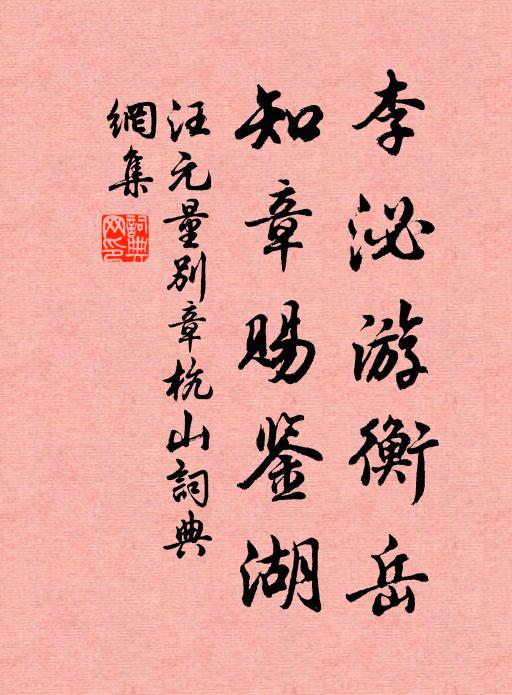 李泌游衡岳
知章赐鉴湖
汪元量别章杭山詞典
網集
詞典
网印